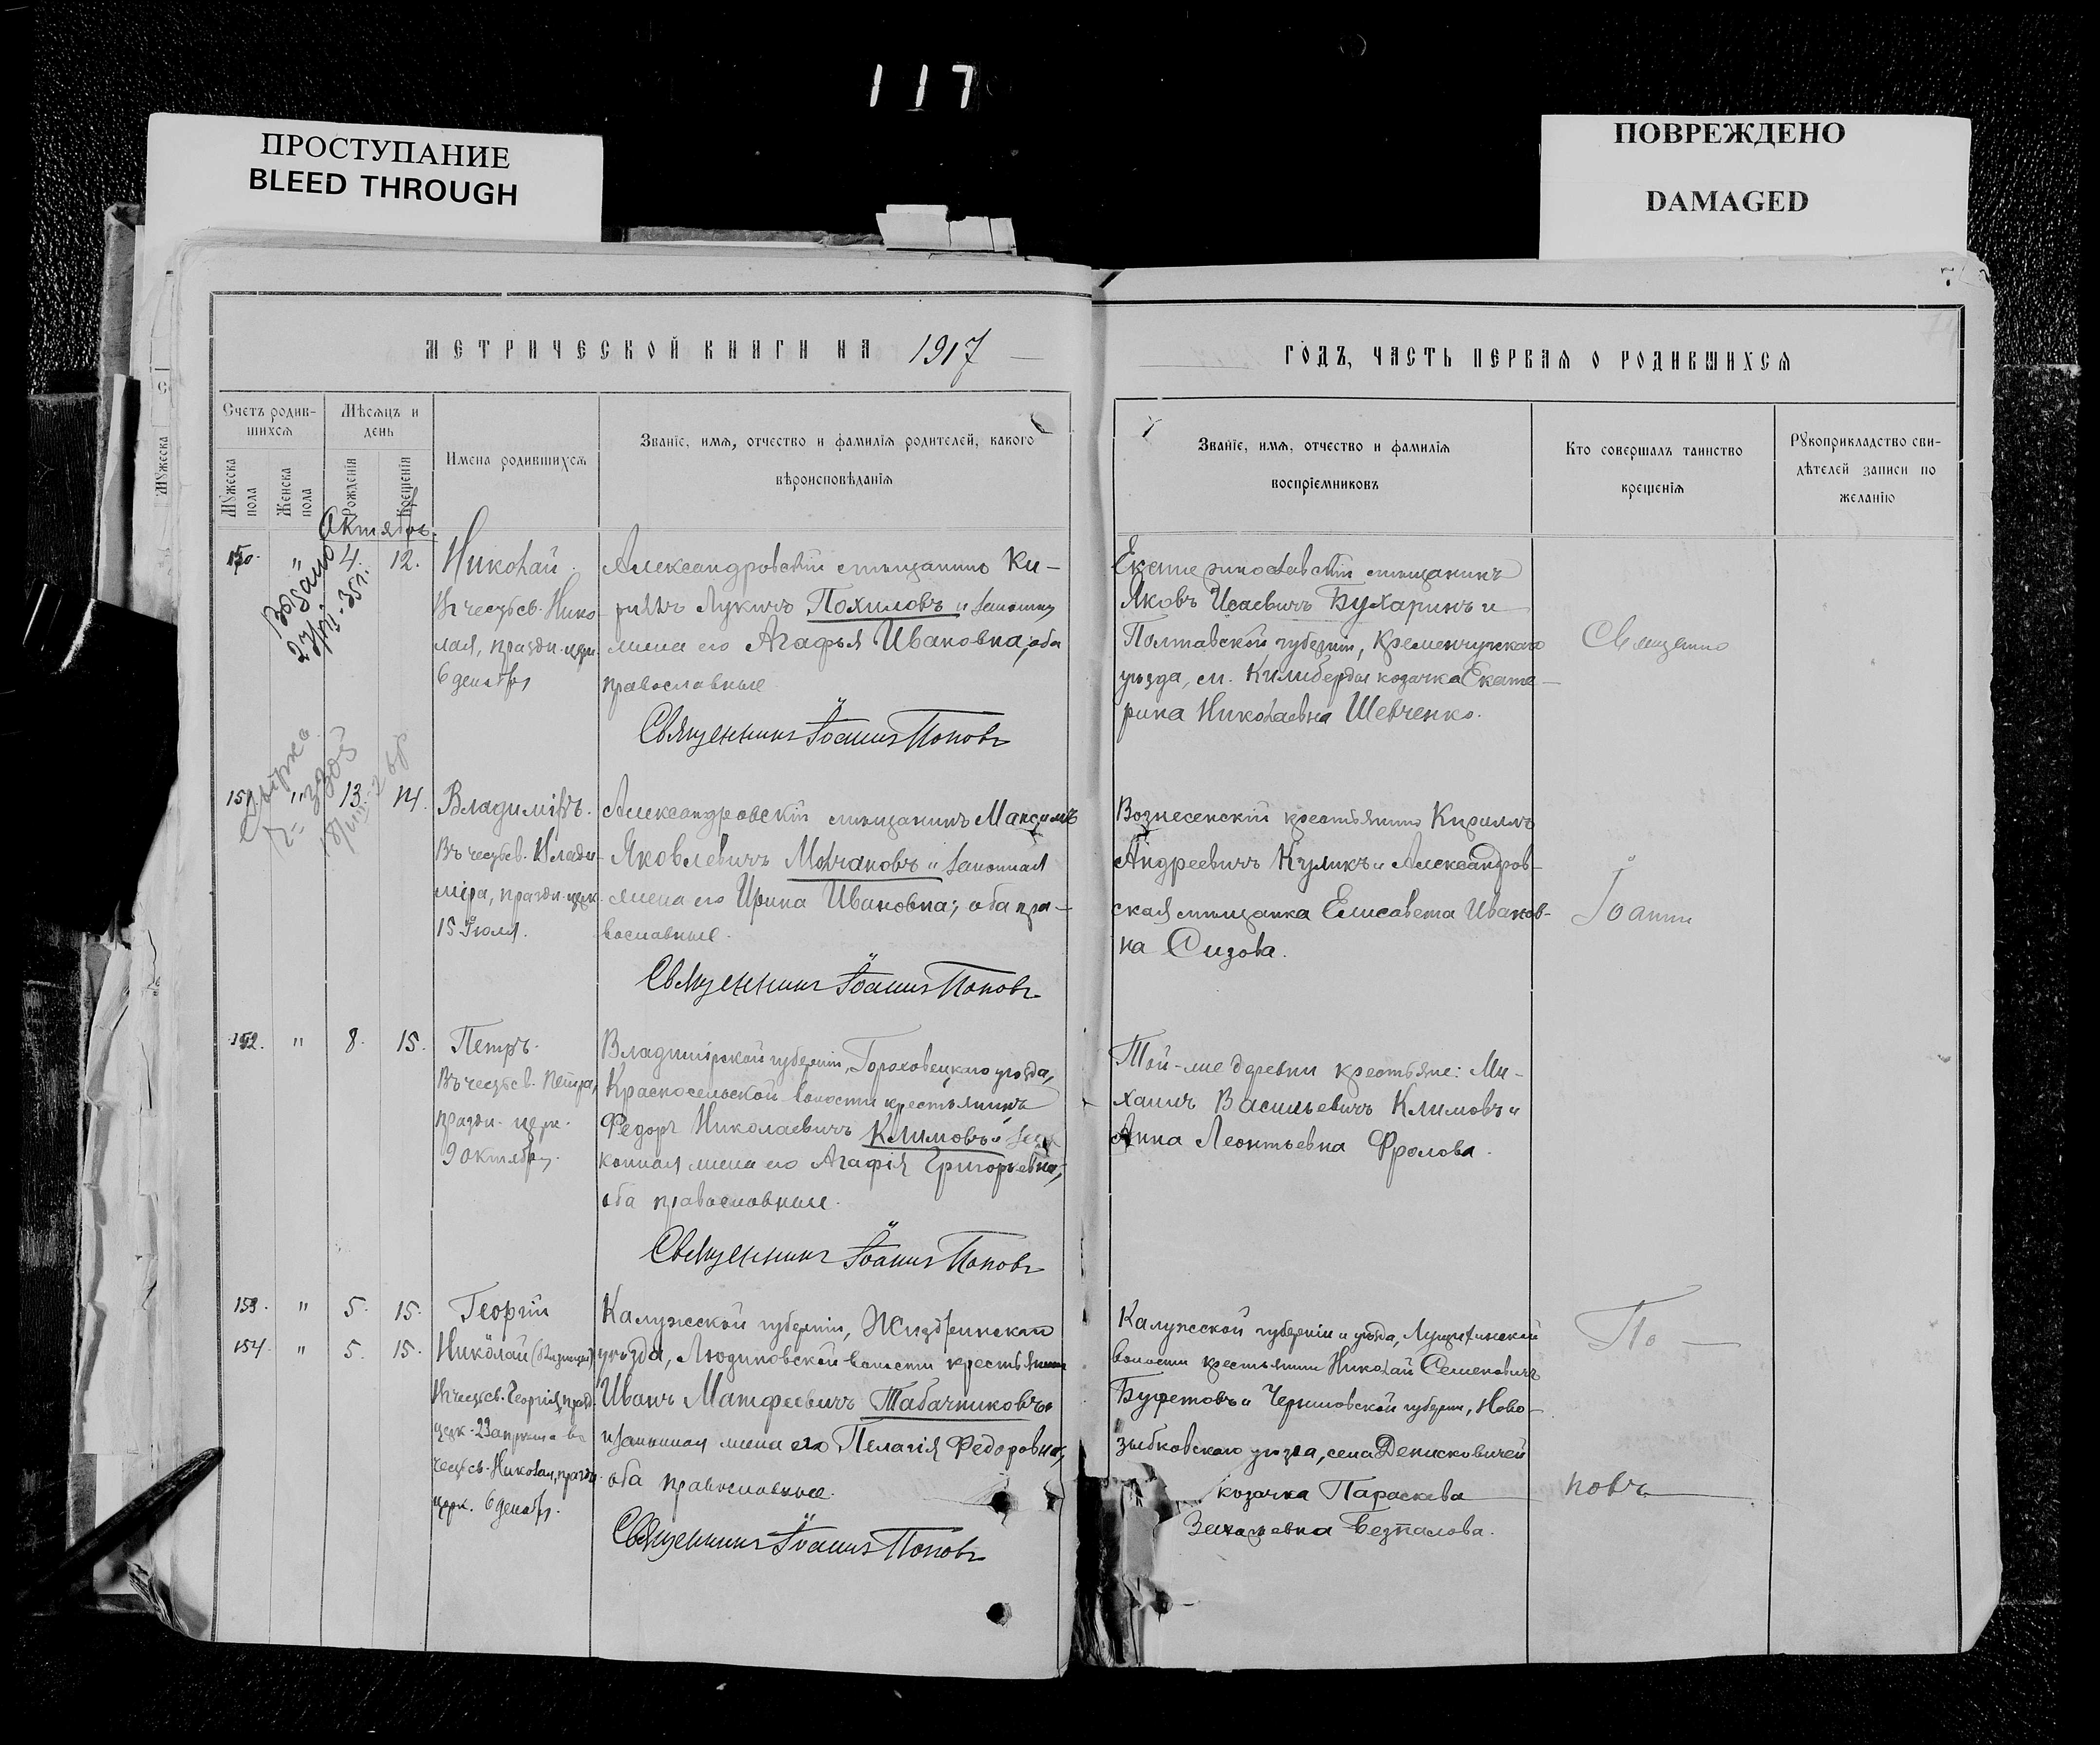 117
ПРОСТУПАНИЕ
BLEED THROUGH
ПОВРЕЖДЕНО
DAMAGED
МЕТРИЧЕСКОЙ КНИГИ НА 1917
Счетъ родив-
шихся
Мѣсяцъ и
день
Мужеска
пола
Женска
пола
Рожденія
Крещенія
Имена родившихся
Званіе, имя, отчество и фамилія родителей, какого
вѣроисповѣданія
Октябрь.
150. " 4. 12.
Николай.
Въ честь св. Нико-
лая, праздн. церк.
6 декабря
Александровскій мѣщанинъ Ки-
риллъ Лукичъ Похиловъ и законная
жена его Агафья Ивановна, оба
православные
Священникъ Іоаннъ Поповъ
151. " 13. 14.
Владиміръ.
Въ честь св. Влади-
міра, праздн. церк.
15 Іюля.
Александровскій мѣщанинъ Максимъ
Яковлевичъ Молчановъ и законная
жена его Ирина Ивановна; оба пра-
вославные.
Священникъ Іоаннъ Поповъ
152. " 8. 15.
Петръ.
Въ честь св. Петра,
праздн. церк.
9 октября.
Владимірской губерніи, Гороховецкаго уѣзда,
Красносельской волости крестьянинъ
Федоръ Николаевичъ Климовъ и за-
конная жена его Агафія Григорьевна,
оба православные.
Священникъ Іоаннъ Поповъ
153. " 5. 15.
Георгій
154. " 5. 15.
Николай (близнецы)
Въ честь св. Георгія, праздн.
церк. 23 апрѣля и въ
честь св. Николая, праздн.
церк. 6 декабря.
Калужской губерніи, Жиздринскаго
уѣзда, Людиновской волости крестьянинъ
Иванъ Матфеевичъ Табачниковъ
и законная жена его Пелагія Федоровна,
оба православные.
Священникъ Іоаннъ Поповъ
ГОДЪ, ЧАСТЬ ПЕРВАЯ О РОДИВШИХСЯ
Званіе, имя, отчество и фамилія
воспріемниковъ
Кто совершалъ таинство
крещенія
Рукоприкладство сви-
дѣтелей записи по
желанію
Екатеринославскій мѣщанинъ
Яковъ Исаевичъ Бухаринъ и
Полтавской губерніи, Кременчугскаго
уѣзда, м. Килиберды козачка Екате-
рина Николаевна Шевченко.
Вознесенскій крестьянинъ Кириллъ
Андреевичъ Куликъ и Александров-
ская мѣщанка Елисавета Иванов-
на Сизова.
Той-же деревни крестьяне: Ми-
хаилъ Васильевичъ Климовъ и
Анна Леонтьевна Фролова.
Калужской губерніи и уѣзда,
волости крестьянинъ Николай Семеновичъ
Буфетовъ и Черниговской губерніи, Ново-
зыбковскаго уѣзда, села Денисковичей
козачка Параскева
Безпалова.
Священно
Іоаннъ
По-
повъ